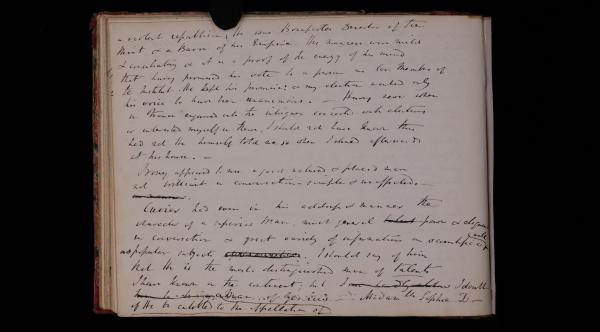 a violent republican, He was Bonapartes Director of the
Mint & a Baron of his Empire. His manners were mild
& conciliating & it is a proof of the energy of his mind
that having promised his vote to a person as Cor. Member of
the Institut. He kept his promise: & my election wanted only
his voice to have been unanimous. — Having never when
in France enquired into the intrigues connected with elections
or interested myself in them, I should not have known this
had not He himself told me so when I dined afterwards
at his house. —
appeared to me a good natured & placid man
not brilliant in conversation simple & unaffected. —
Cuvier had even in his address & manner the
character of a superior Man, much general talent power & eloquence
in conversation & great variety of information on scientific as well
as popular subjects. I should say of him
that He is the most distinguished man of talents
I have known on the continent; but I I doubt
of Genius.
if He be entitled to the appellation of